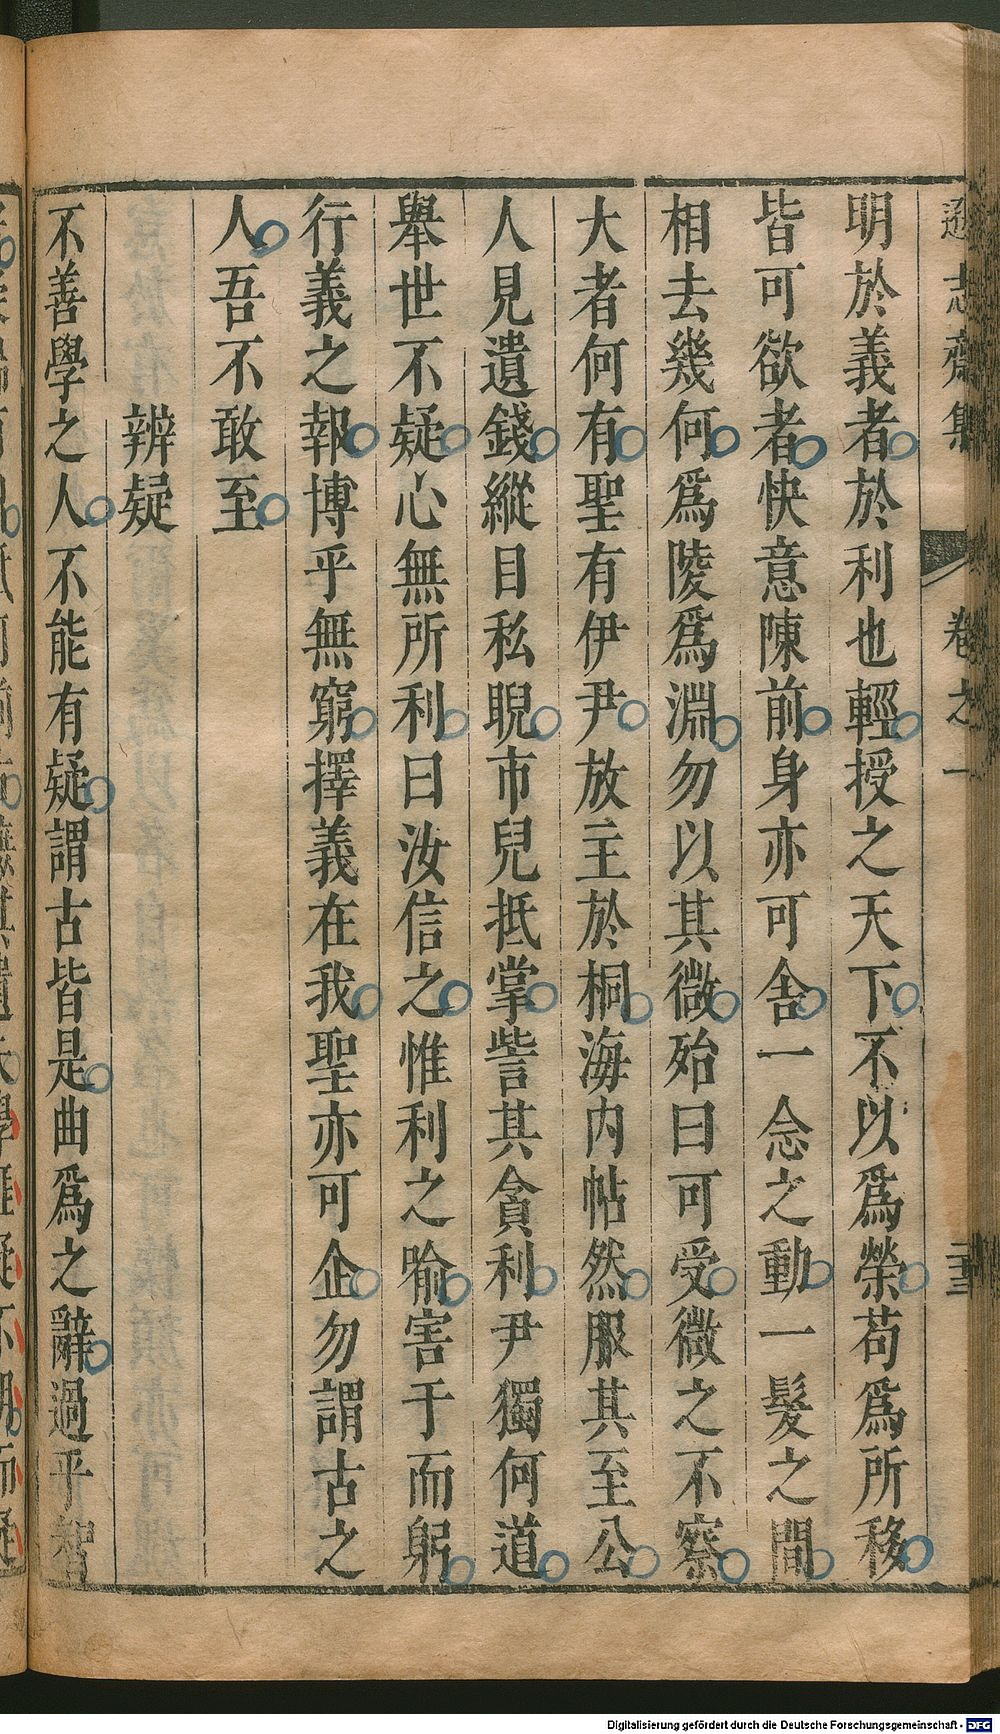 遜志齋集 卷之一 二三
明於義者於利也輕授之天下不以爲榮苟爲所移
皆可欲者快意陳前身亦可舍一念之動一髮之間
相去幾何爲陵爲淵勿以其微殆曰可受微之不察
大者何有聖有伊尹放主於桐海內帖然服其至公
人見遺錢縱目私睨市兒抵掌訾其貪利尹獨何道
舉世不疑心無所利曰汝信之惟利之喻害于而躬
行義之報博乎無窮擇義在我聖亦可企勿謂古之
人吾不敢至
辨疑
不善學之人不能有疑謂古皆是曲爲之辭過乎智
Digitalisierung gefördert durch die Deutsche Forschungsgemeinschaft - DFG